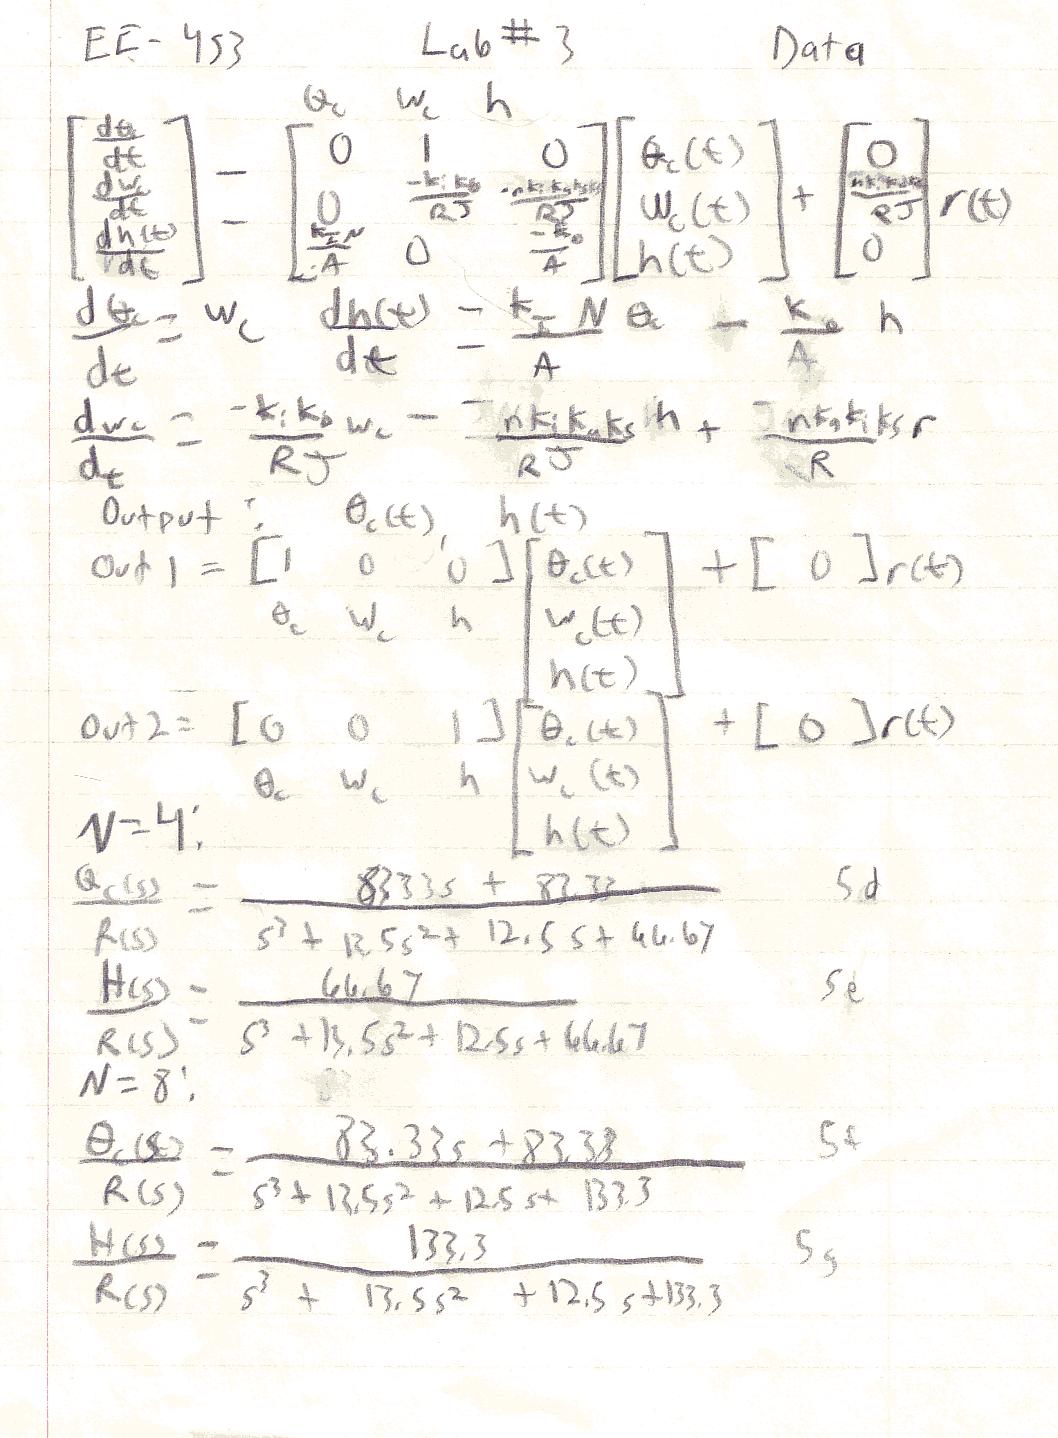 EE-453 Lab # 3 Data
θc wc h
[dθc/dt] = [0 1 0] [θc(t)] + [0] r(t)
[dwc/dt] = [0 -kikb/RJ -nkikaks/RJ] [wc(t)] [nkikaks/RJ]
[dh(t)/dt] [kIN/A 0 -ko/A] [h(t)] [0]
dθc/dt = wc dh(t)/dt = kI N/A θc - ko/A h
dwc/dt = -kikb/RJ wc - nkikaks/RJ h + nkakiks/R r
Output: θc(t), h(t)
Out 1 = [1 0 0] [θc(t) + [0] r(t)
θc wc h wc(t)
h(t)]
Out 2 = [0 0 1] [θc(t) + [0] r(t)
θc wc h wc(t)
h(t)]
N=4:
θc(s)/R(s) = 83.33s + 83.33 / s³ + 13.5s² + 12.5s + 66.67 5d
H(s)/R(s) = 66.67 / s³ + 13.5s² + 12.5s + 66.67 5e
N=8:
θc(s)/R(s) = 83.33s + 83.33 / s³ + 13.5s² + 12.5s + 133.3 5f
H(s)/R(s) = 133.3 / s³ + 13.5s² + 12.5s + 133.3 5g